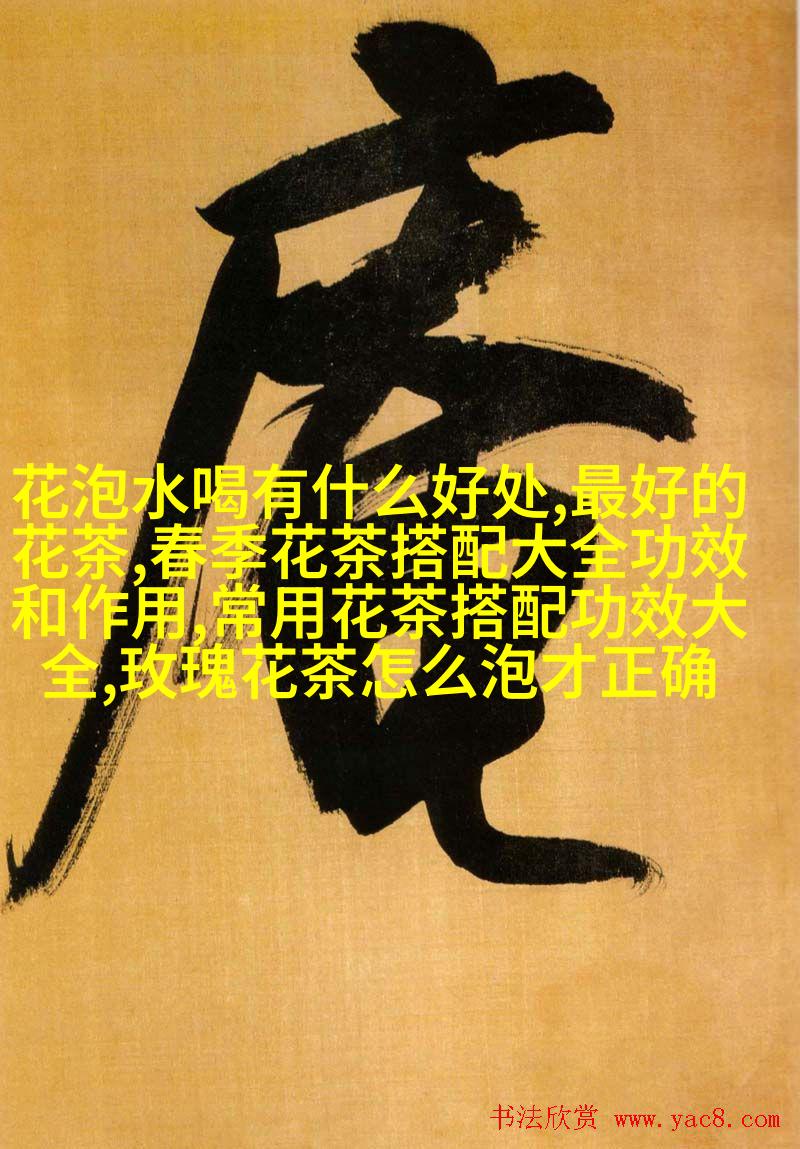 庵
花泡水喝有什么好处,最好的
花茶,春季花茶搭配大全功效
和作用,常用花茶搭配功效大
全,玫瑰花茶怎么泡才正确
书法欣赏 www.yac8.com